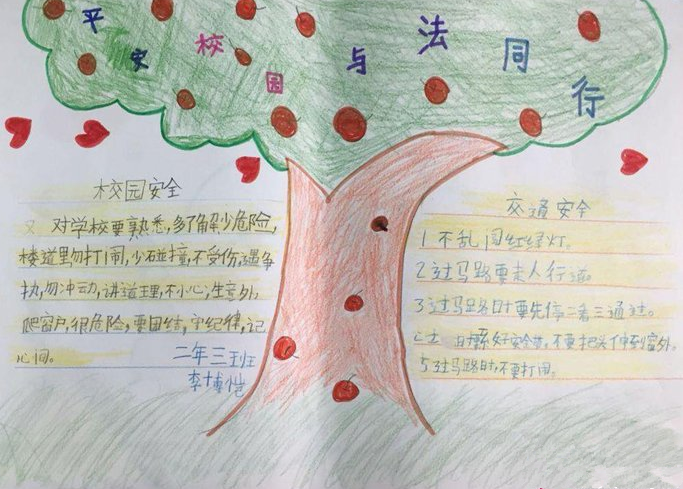 平安校园与法同行
校园安全
对学校要熟悉,多了解少危险,
楼道里勿打闹,少碰撞,不受伤,遇争
执,勿冲动,讲道理,不小心,生意外,
爬窗户,很危险,要团结,守纪律,记
心间。
二年三班
李博恺
交通安全
1 不乱闯红绿灯。
2 过马路要走人行道。
3 过马路时要先停二看三通过。
系好安全带,不要把头伸到窗外。
5 过马路时,不要打闹。